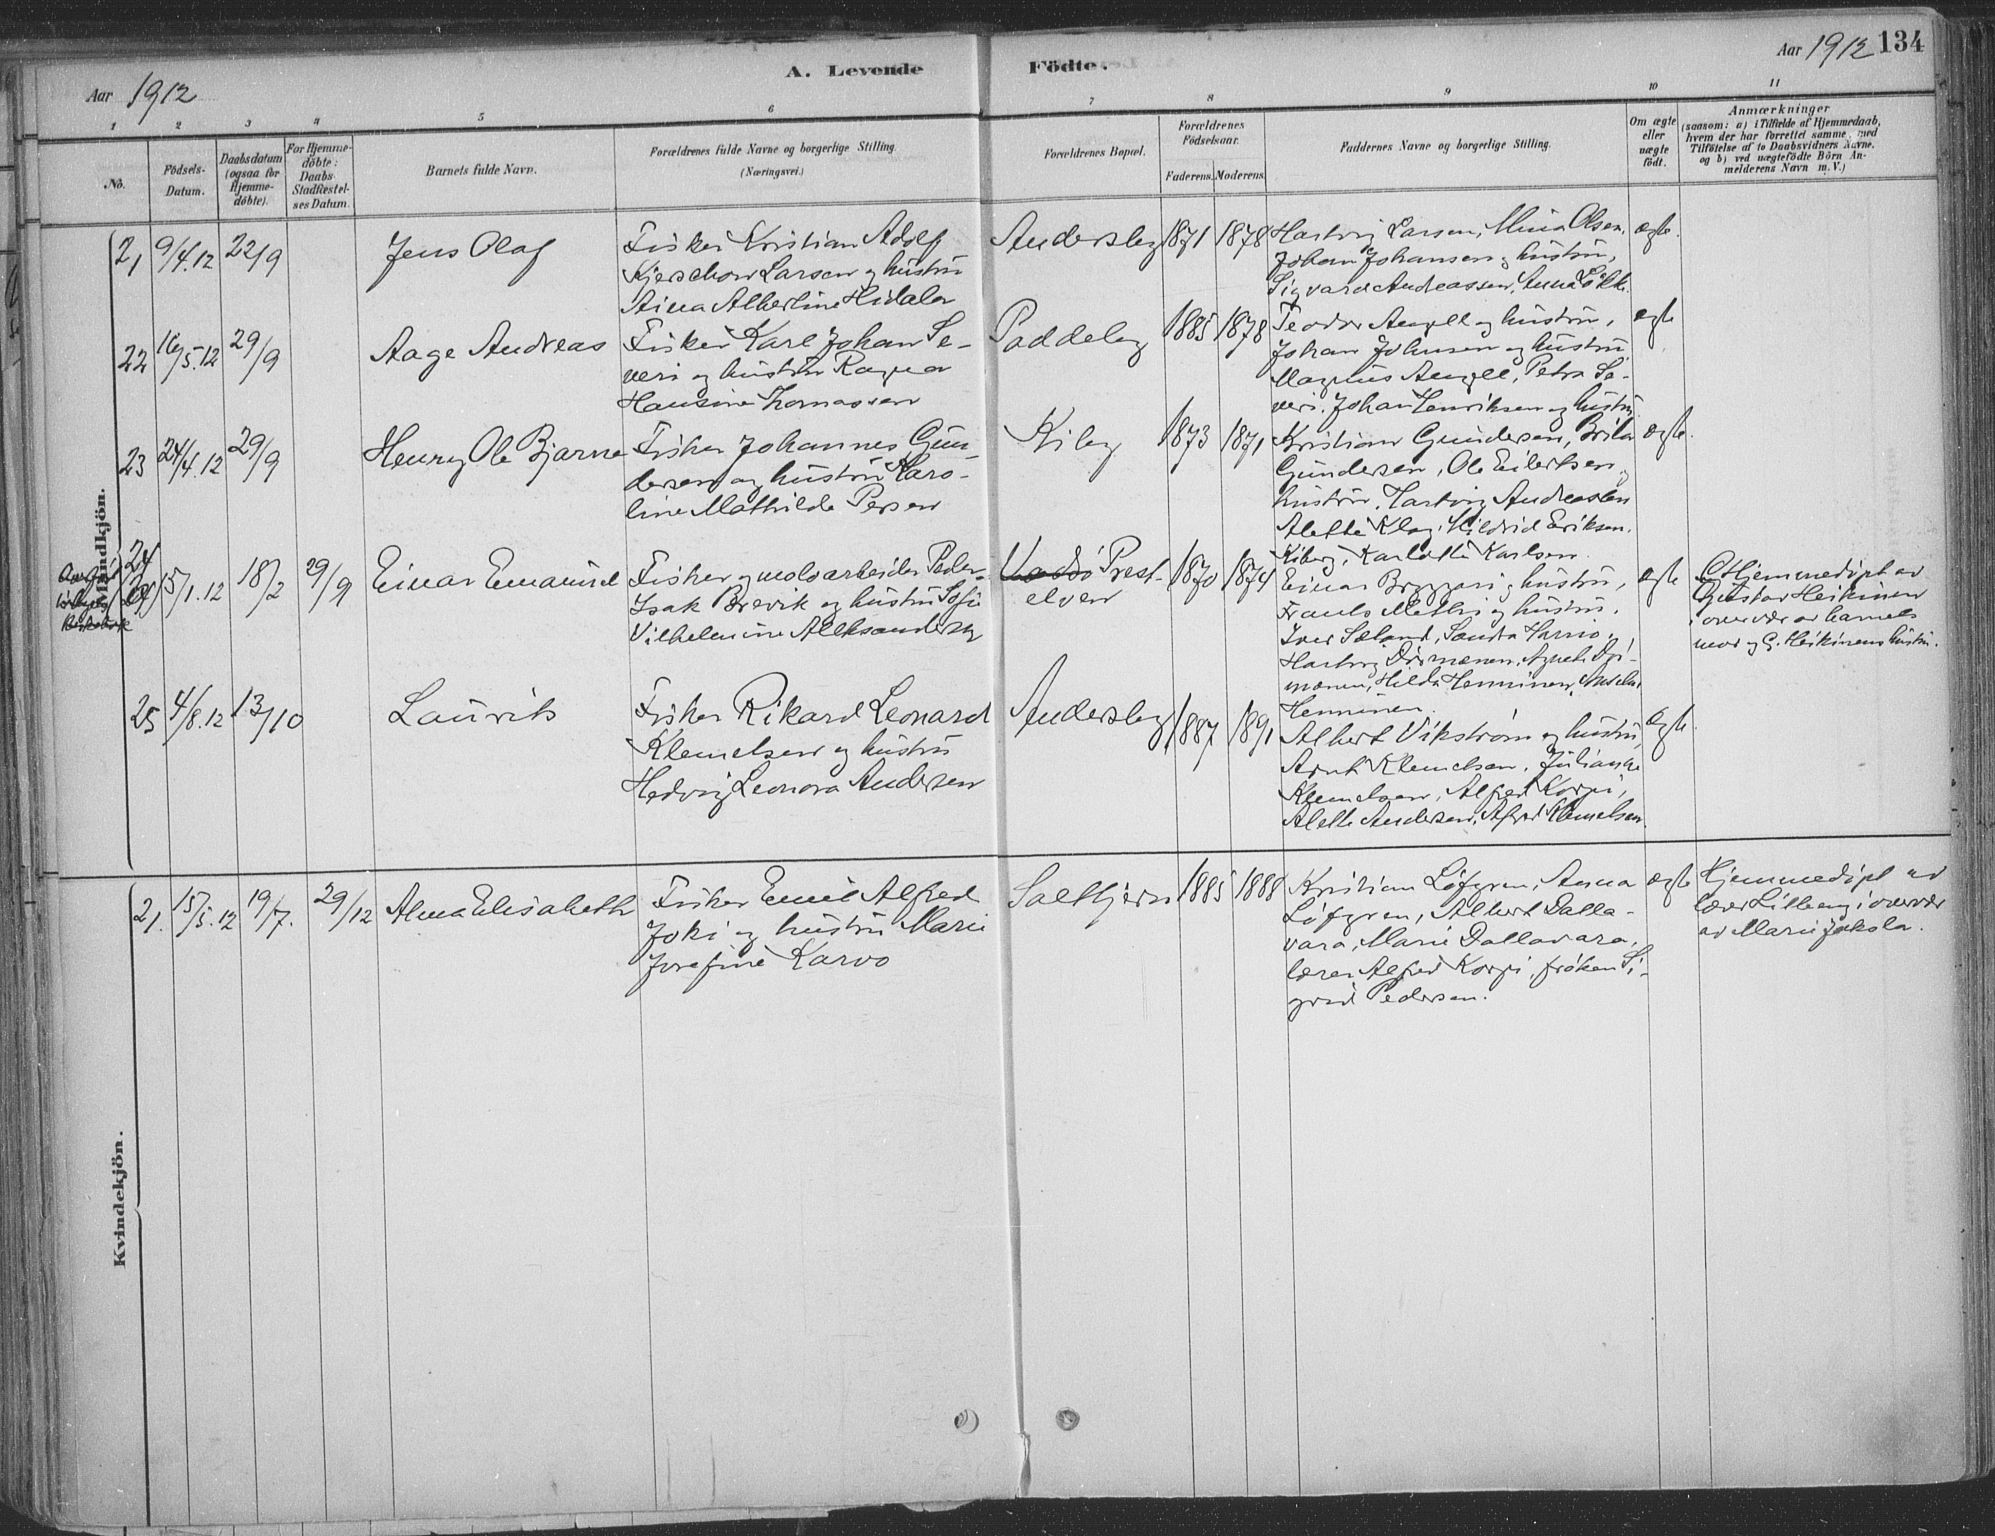 Aar 1912
A. Levende Födte.
Aar 1912 134
1 2 3 4 5 6 7 8 9 10 11
No.
Födsels-
Datum.
Daabsdatum
(ogsaa for
Hjemme-
döbte).
For Hjemme-
döbte:
Daabs-
Stadfæstel-
ses Datum.
Barnets fulde Navn.
Forældrenes fulde Navne og borgerlige Stilling.
(Næringsvei.)
Forældrenes Bopæl.
Forældrenes
Födselsaar.
Faderens. Moderens.
Faddernes Navne og borgerlige Stilling.
Om ægte
eller
uægte
födt.
Anmærkninger
(saasom: a) i Tilfælde af Hjemmedaab,
hvem der har forrettet samme, med
Tilföielse af to Daabsvidners Navne,
og b) ved uægtefödte Börn An-
melderens Navn m. V.)
Mandkjön.
21 9/4.12 22/9
Jens Olaf
Fisker Kristian Adolf
Kjerschow Larsen og hustru
Aina Albertine Hidalen
Andersby 1871 1878
Hartvig Larsen, Mina Olsen,
Johan Johansen og hustru,
Sigvard Andreassen, Anna Løkke.
ægte.
22 16/5.12 29/9
Aage Andreas
Fisker Karl Johan Se-
veri og hustru Ragna
Hansine Thomassen
Paddeby 1885 1878
Teodor Angell og hustru,
Johan Johnsen og hustru
Magnus Angell, Petra Se-
veri, Johan Henriksen og hustru
ægte
23 24/4.12 29/9
Henry Ole Bjarne
Fisker Johannes Gun-
dersen og hustru Karo-
line Mathilde Persen
Kiby 1873 1871
Kristian Gundersen, Brita
Gundersen, Ole Eilertsen og
hustru, Hartvig Andreassen
Alette Klog, Hildrid Eriksen,
Kiberg, Karlotte Karlsen.
ægte.
24 15/1.12 18/2 29/9
Einar Emanuel
Fisker og moloarbeider Peder
Isak Brevik og hustru Sofie
Vilhelmine Aleksandersen
Vadsö Prest-
elven 1870 1874
Einar Bryggari og hustru,
Frants Mathis og hustru,
Iver Sæland, Sandra Harnio,
Hartvig
Hilda Henninen,
Henninen.
ægte
Hjemmedöpt av
Gustav Heikinen
i overvær av barnets
mor og G. Heikinens hustru.
25 4/8.12 13/10
Laurits
Fisker Rikard Leonard
Klemetsen og hustru
Hedvig Leonora Andersen
Andersby 1887 1891
Albert Vikström og hustru,
Arnt Klemetsen, Juliane
Klemetsen, Alfred Korpi,
Alette Andersen, Alfred Klemetsen.
ægte.
Kvindekjön.
21. 15/5.12 19/7. 29/12
Alma Elisabeth
Fisker Emil Alfred
Joki og hustru Marie
Josefine Karvo
Saltkjern 1885 1888
Kristian Löfgren, Anna
Löfgren, Albert Dalla-
vara, Marie Dallavara,
lærer Alfred Korpi, fröken Si-
grid Pedersen.
ægte
Hjemmedöpt av
lærer Lilleng i overvær
av Marie Jokola.